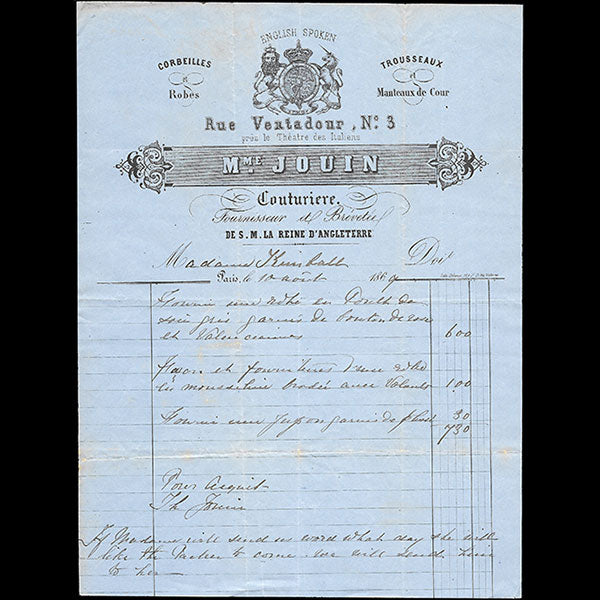 ENGLISH SPOKEN
CORBEILLES
et
Robes
TROUSSEAUX
et
Manteaux de Cour
Rue Ventadour, No. 3
près le Théâtre des Italiens
MME. JOUIN
Couturiere.
Fournisseur et Brévetée
DE S. M. LA REINE D'ANGLETERRE
Madame Kimball Doit
Paris, le 10 août 1869
Fourni une robe en Poult de
soie gris garnis de bouton de rose
et Valenciennes 600
Façon et fournitures d'une robe
en mousseline brodée avec Volants 100
Fourni un jupon garnis de 30
730
Pour Acquit
Th Jouin
If Madame will send us word what day she will
like the to come we will send him
to her